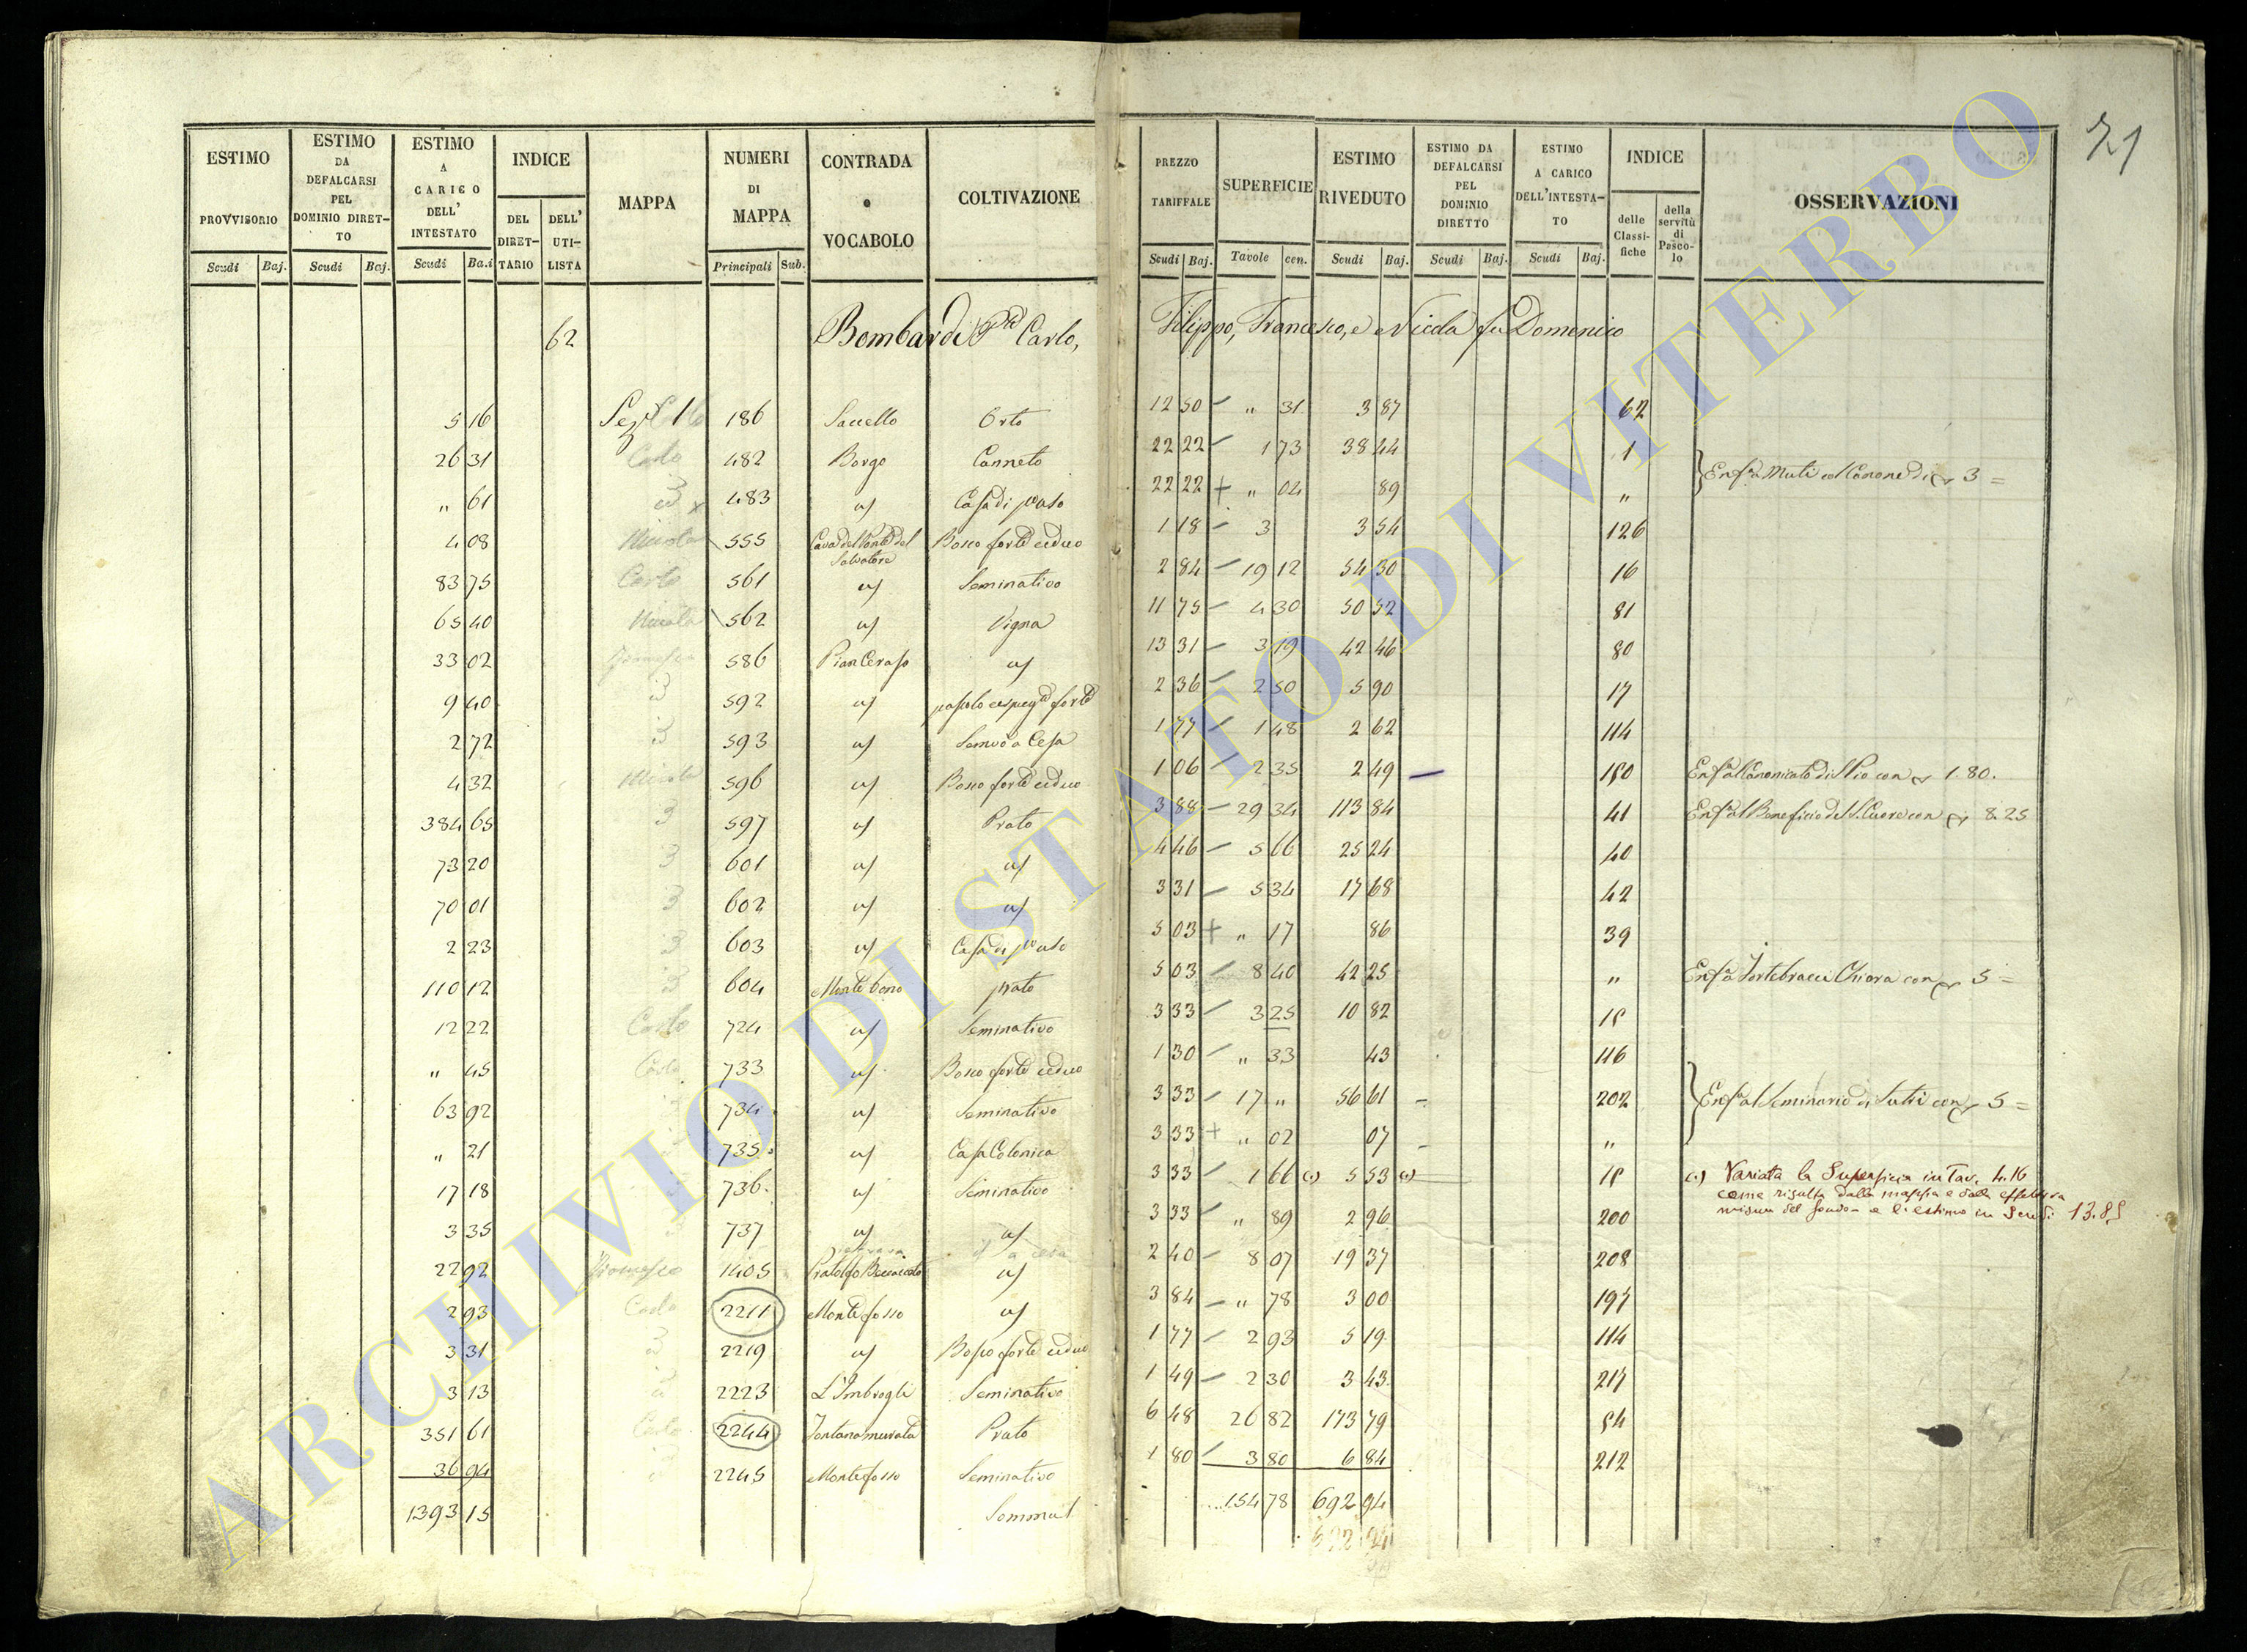 71
ESTIMO PROVVISORIO
ESTIMO DA DEFALCARSI PEL DOMINIO DIRET-TO
ESTIMO A CARICO DELL' INTESTATO
INDICE
DEL DIRET-TARIO
DELL' UTI-LISTA
MAPPA
NUMERI DI MAPPA
CONTRADA o VOCABOLO
COLTIVAZIONE
PREZZO TARIFFALE
SUPERFICIE
ESTIMO RIVEDUTO
ESTIMO DA DEFALCARSI PEL DOMINIO DIRETTO
ESTIMO A CARICO DELL'INTESTA-TO
INDICE
delle Classi-fiche
della servitù di Pasco-lo
OSSERVAZIONI
Scudi Baj. Scudi Baj. Scudi Ba.i Principali Sub. Scudi Baj. Tavole cen. Scudi Baj. Scudi Baj. Scudi Baj.
62 Bombardi Carlo, Filippo, Francesco, e Nicola fu Domenico
5 16 1 186 Saccello Orto 12 50 " 31 3 87 62
26 31 Carlo 482 Borgo Canneto 22 22 1 73 38 44 1
" 61 483 Casa di 22 22 + " 04 89 "
3 =
4 08 Nicola 555 Salvatore Bosco forte ceduo 1 18 3 3 54 126
83 75 Carlo 561 Seminativo 2 84 19 12 54 30 16
65 40 Nicola 562 Vigna 11 75 4 30 50 52 81
33 02 586 Pian Ceraso 13 31 3 19 42 46 80
9 40 592 forte 2 36 2 50 5 90 17
2 72 593 a Cesa 1 77 1 48 2 62 114
4 32 Nicola 596 Bosco forte ceduo 1 06 2 35 2 49 Canonicato di con 1 80.
384 65 597 Prato 3 88 29 34 113 84 41 Beneficio del S. Cuore con 8.25
73 20 601 4 46 5 66 25 24 40
70 01 602 3 31 5 34 17 68 42
2 23 603 Casa di 5 03 + " 17 86 39
110 12 604 Monte bono prato 5 03 8 40 42 25 " Fortebracci Chiara con 5 =
12 22 Carlo 724 Seminativo 3 33 3 25 10 82
" 45 Carlo 733 Bosco forte ceduo 1 30 " 33 43 116
63 92 734 Seminativo 3 33 17 " 56 61 202 Seminario di Sutri con 5 =
" 21 735 Casa Colonica 3 33 + " 02 07 "
17 18 736 Seminativo 3 33 1 66 5 53 Variata la Superficie in Tav. 4.16
come risulta dalla mappa e dalla effettiva
misura del fondo - e l'estimo in Scudi 13.85
3 35 737 3 33 " 89 2 96 200
22 92 Francesco 1405 2 40 8 07 19 37 208
2 93 Carlo 2211 Monte fosso 3 84 " 78 3 00
3 31 2219 Bosco forte ceduo 1 77 2 93 5 19 114
3 13 2223 L'Imbrogli Seminativo 1 49 2 30 3 43
351 61 Carlo 2244 Fontana murata Prato 6 48 26 82 173 79
36 94 2245 Monte fosso Seminativo 1 80 3 80 6 84 212
1393 15 154 78 692 94
ARCHIVIO DI STATO DI VITERBO